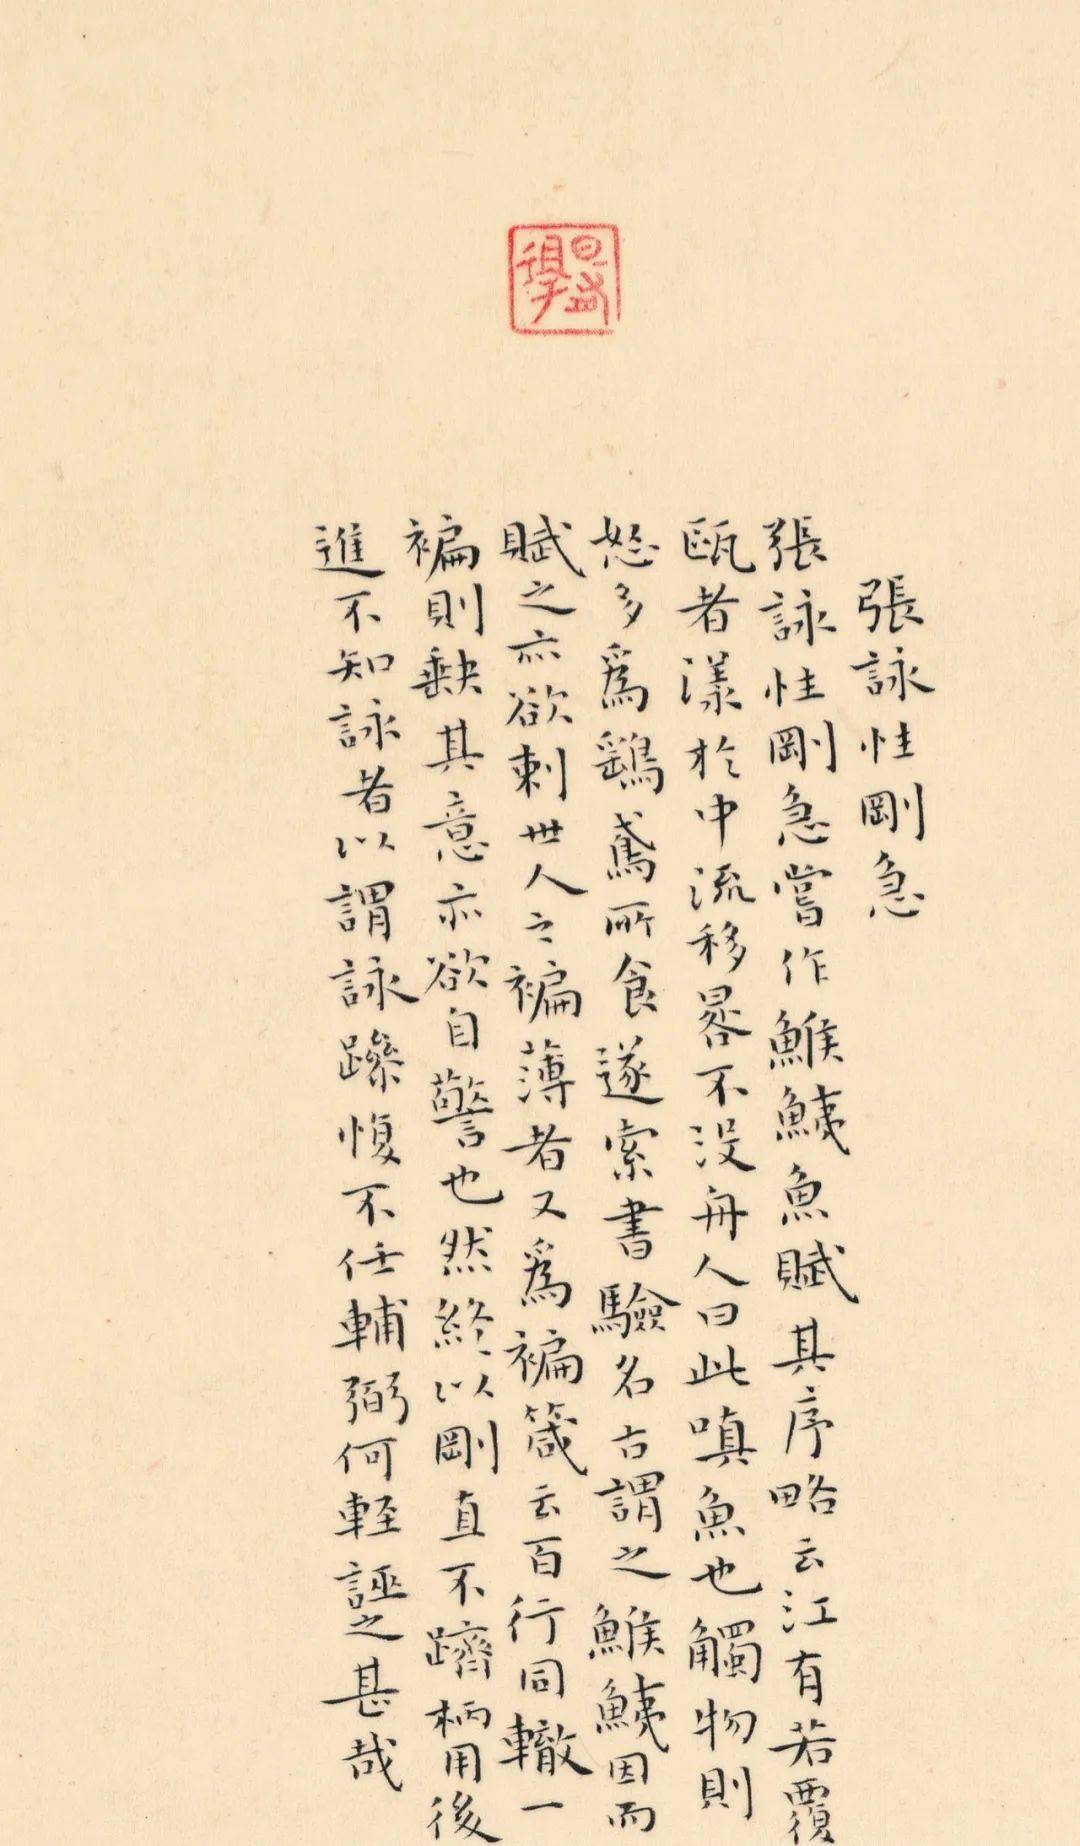 張詠性剛急
張詠性剛急嘗作鯸鮧魚賦其序略云江有若覆
甌者漾於中流移晷不没舟人曰此嗔魚也觸物則
怒多為鵶鳶所食遂索書驗名古謂之鯸鮧因而
賦之亦欲刺世人之褊薄者又為褊箴云百行同轍一
褊則缺其意亦欲自警也然終以剛直不躋柄用後
進不知詠者以謂詠躁愎不任輔弼何輕誣之甚哉